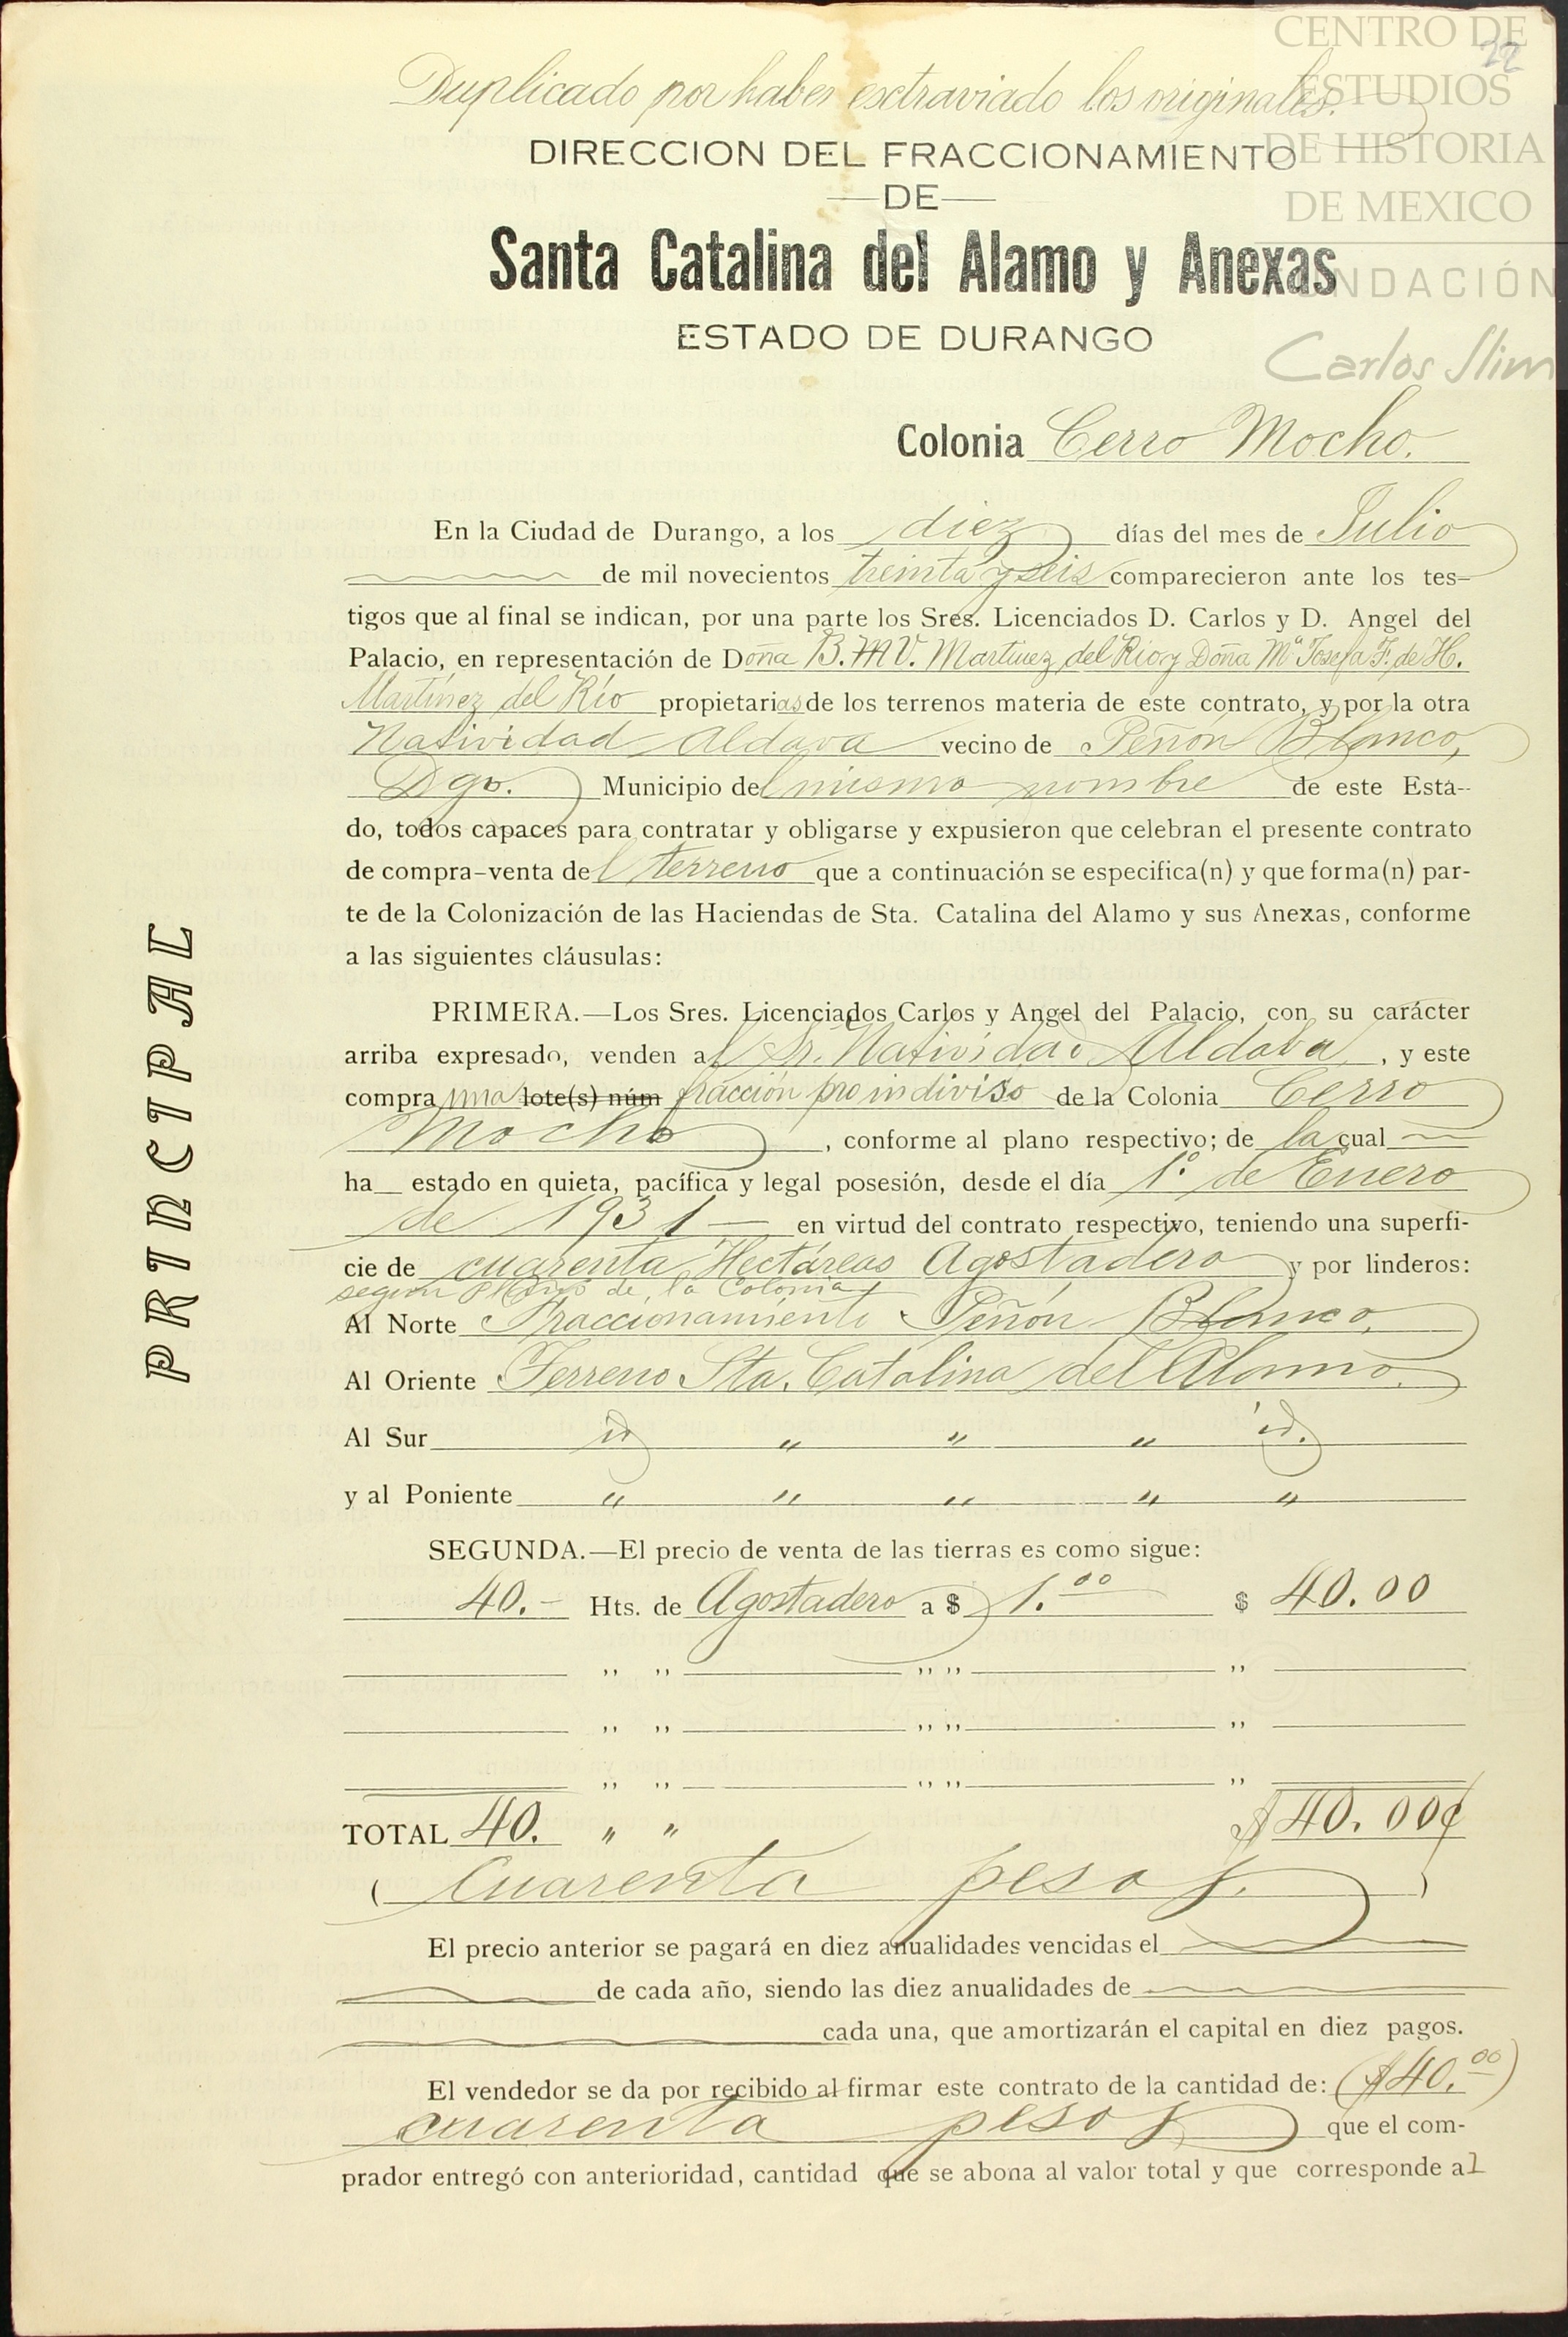 CENTRO DE
ESTUDIOS
DE HISTORIA
DE MEXICO
FUNDACIÓN
Carlos Slim
22
Duplicado por haber esctraviado los originales.
DIRECCION DEL FRACCIONAMIENTO
—DE—
Santa Catalina del Alamo y Anexas
ESTADO DE DURANGO
Colonia Cerro Mocho.
PRINCIPAL
En la Ciudad de Durango, a los diez días del mes de Julio
de mil novecientos treinta y seis comparecieron ante los tes-
tigos que al final se indican, por una parte los Sres. Licenciados D. Carlos y D. Angel del
Palacio, en representación de Doña B. M V. Martinez del Rio y Doña Mª Josefa F. de H.
Martínez del Río propietarias de los terrenos materia de este contrato, y por la otra
Natividad Aldava vecino de Peñón Blanco,
Dgo. Municipio del mismo nombre de este Esta-
do, todos capaces para contratar y obligarse y expusieron que celebran el presente contrato
de compra-venta del terreno que a continuación se especifica(n) y que forma(n) par-
te de la Colonización de las Haciendas de Sta. Catalina del Alamo y sus Anexas, conforme
a las siguientes cláusulas:
PRIMERA.—Los Sres. Licenciados Carlos y Angel del Palacio, con su carácter
arriba expresado, venden al Sr. Natividad Aldava, y este
compra una lote(s) núm fracción pro indiviso de la Colonia Cerro
Mocho, conforme al plano respectivo; de la cual
ha estado en quieta, pacífica y legal posesión, desde el día 1º de Enero
de 1931 — en virtud del contrato respectivo, teniendo una superfi-
cie de cuarenta Hectáreas Agostadero y por linderos:
según Plano de la Colonia
Al Norte Fraccionamiento Peñón Blanco,
Al Oriente Terreno Sta. Catalina del Alamo.
Al Sur id " " " id.
y al Poniente " " " " "
SEGUNDA.—El precio de venta de las tierras es como sigue:
40.- Hts. de Agostadero a $ 1.00 $ 40.00
" " " " "
" " " " "
" " " " "
TOTAL 40. " " $ 40.00¢
( Cuarenta pesos. )
El precio anterior se pagará en diez anualidades vencidas el
de cada año, siendo las diez anualidades de
cada una, que amortizarán el capital en diez pagos.
El vendedor se da por recibido al firmar este contrato de la cantidad de: ($40.00)
cuarenta pesos que el com-
prador entregó con anterioridad, cantidad que se abona al valor total y que corresponde al